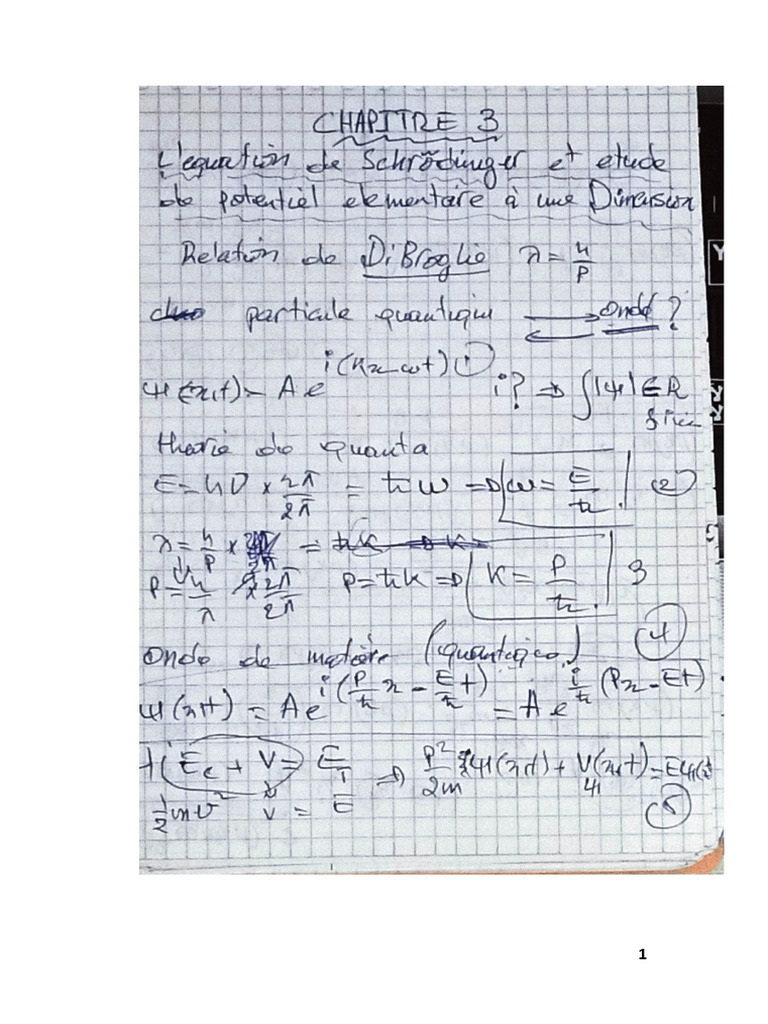 CHAPITRE 3
L'equation de Schrödinger et etude
de potentiel elementaire à une Dimension
Relation de DiBroglie λ = h/p
particule quantiqui ⇄ onde ?
Ψ(x,t) = A e^{i(kx-ωt)} ① i? ⇒ ∫|Ψ| ∈ R
theorie de quanta
E = hν × 2π/2π = ħω ⇒ ω = E/ħ. ②
λ = h/p ×
P = h/λ × 2π/2π P = ħk ⇒ K = P/ħ. 3
Onde de matière (quantique) ④
Ψ(x,t) = A e^{i(P/ħ x - E/ħ t)} = A e^{i/ħ (Px - Et)}
H( Ec + V = E_T ⇒ P²/2m Ψ(x,t) + V(x,t) Ψ = EΨ(x,t)
1/2 mv² V = E ⑤
1